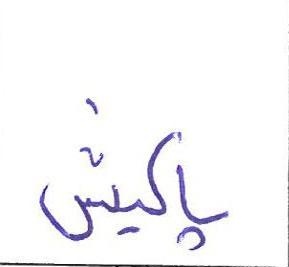 پاکیش